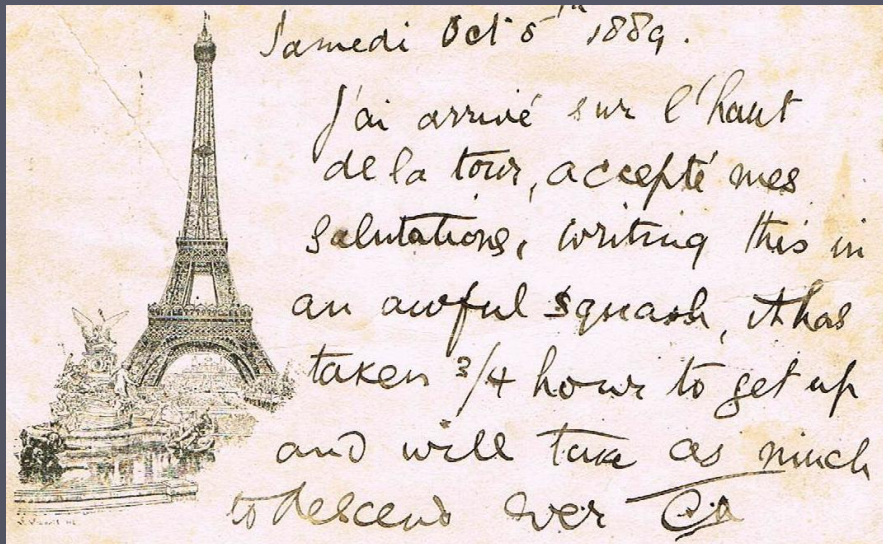 Samedi Oct 5th 1889.
J'ai arrivé sur l'haut
de la tour, accepté mes
salutations, writing this in
an awful squash, it has
taken 3/4 hour to get up
and will take as much
to descend